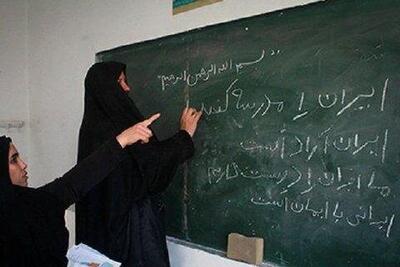 "بسم الله الرحمن الرحیم"
ایران را مدرسه کنید
ایران آزاد است
ما ایران را درست داریم
ایرانی با ایمان است